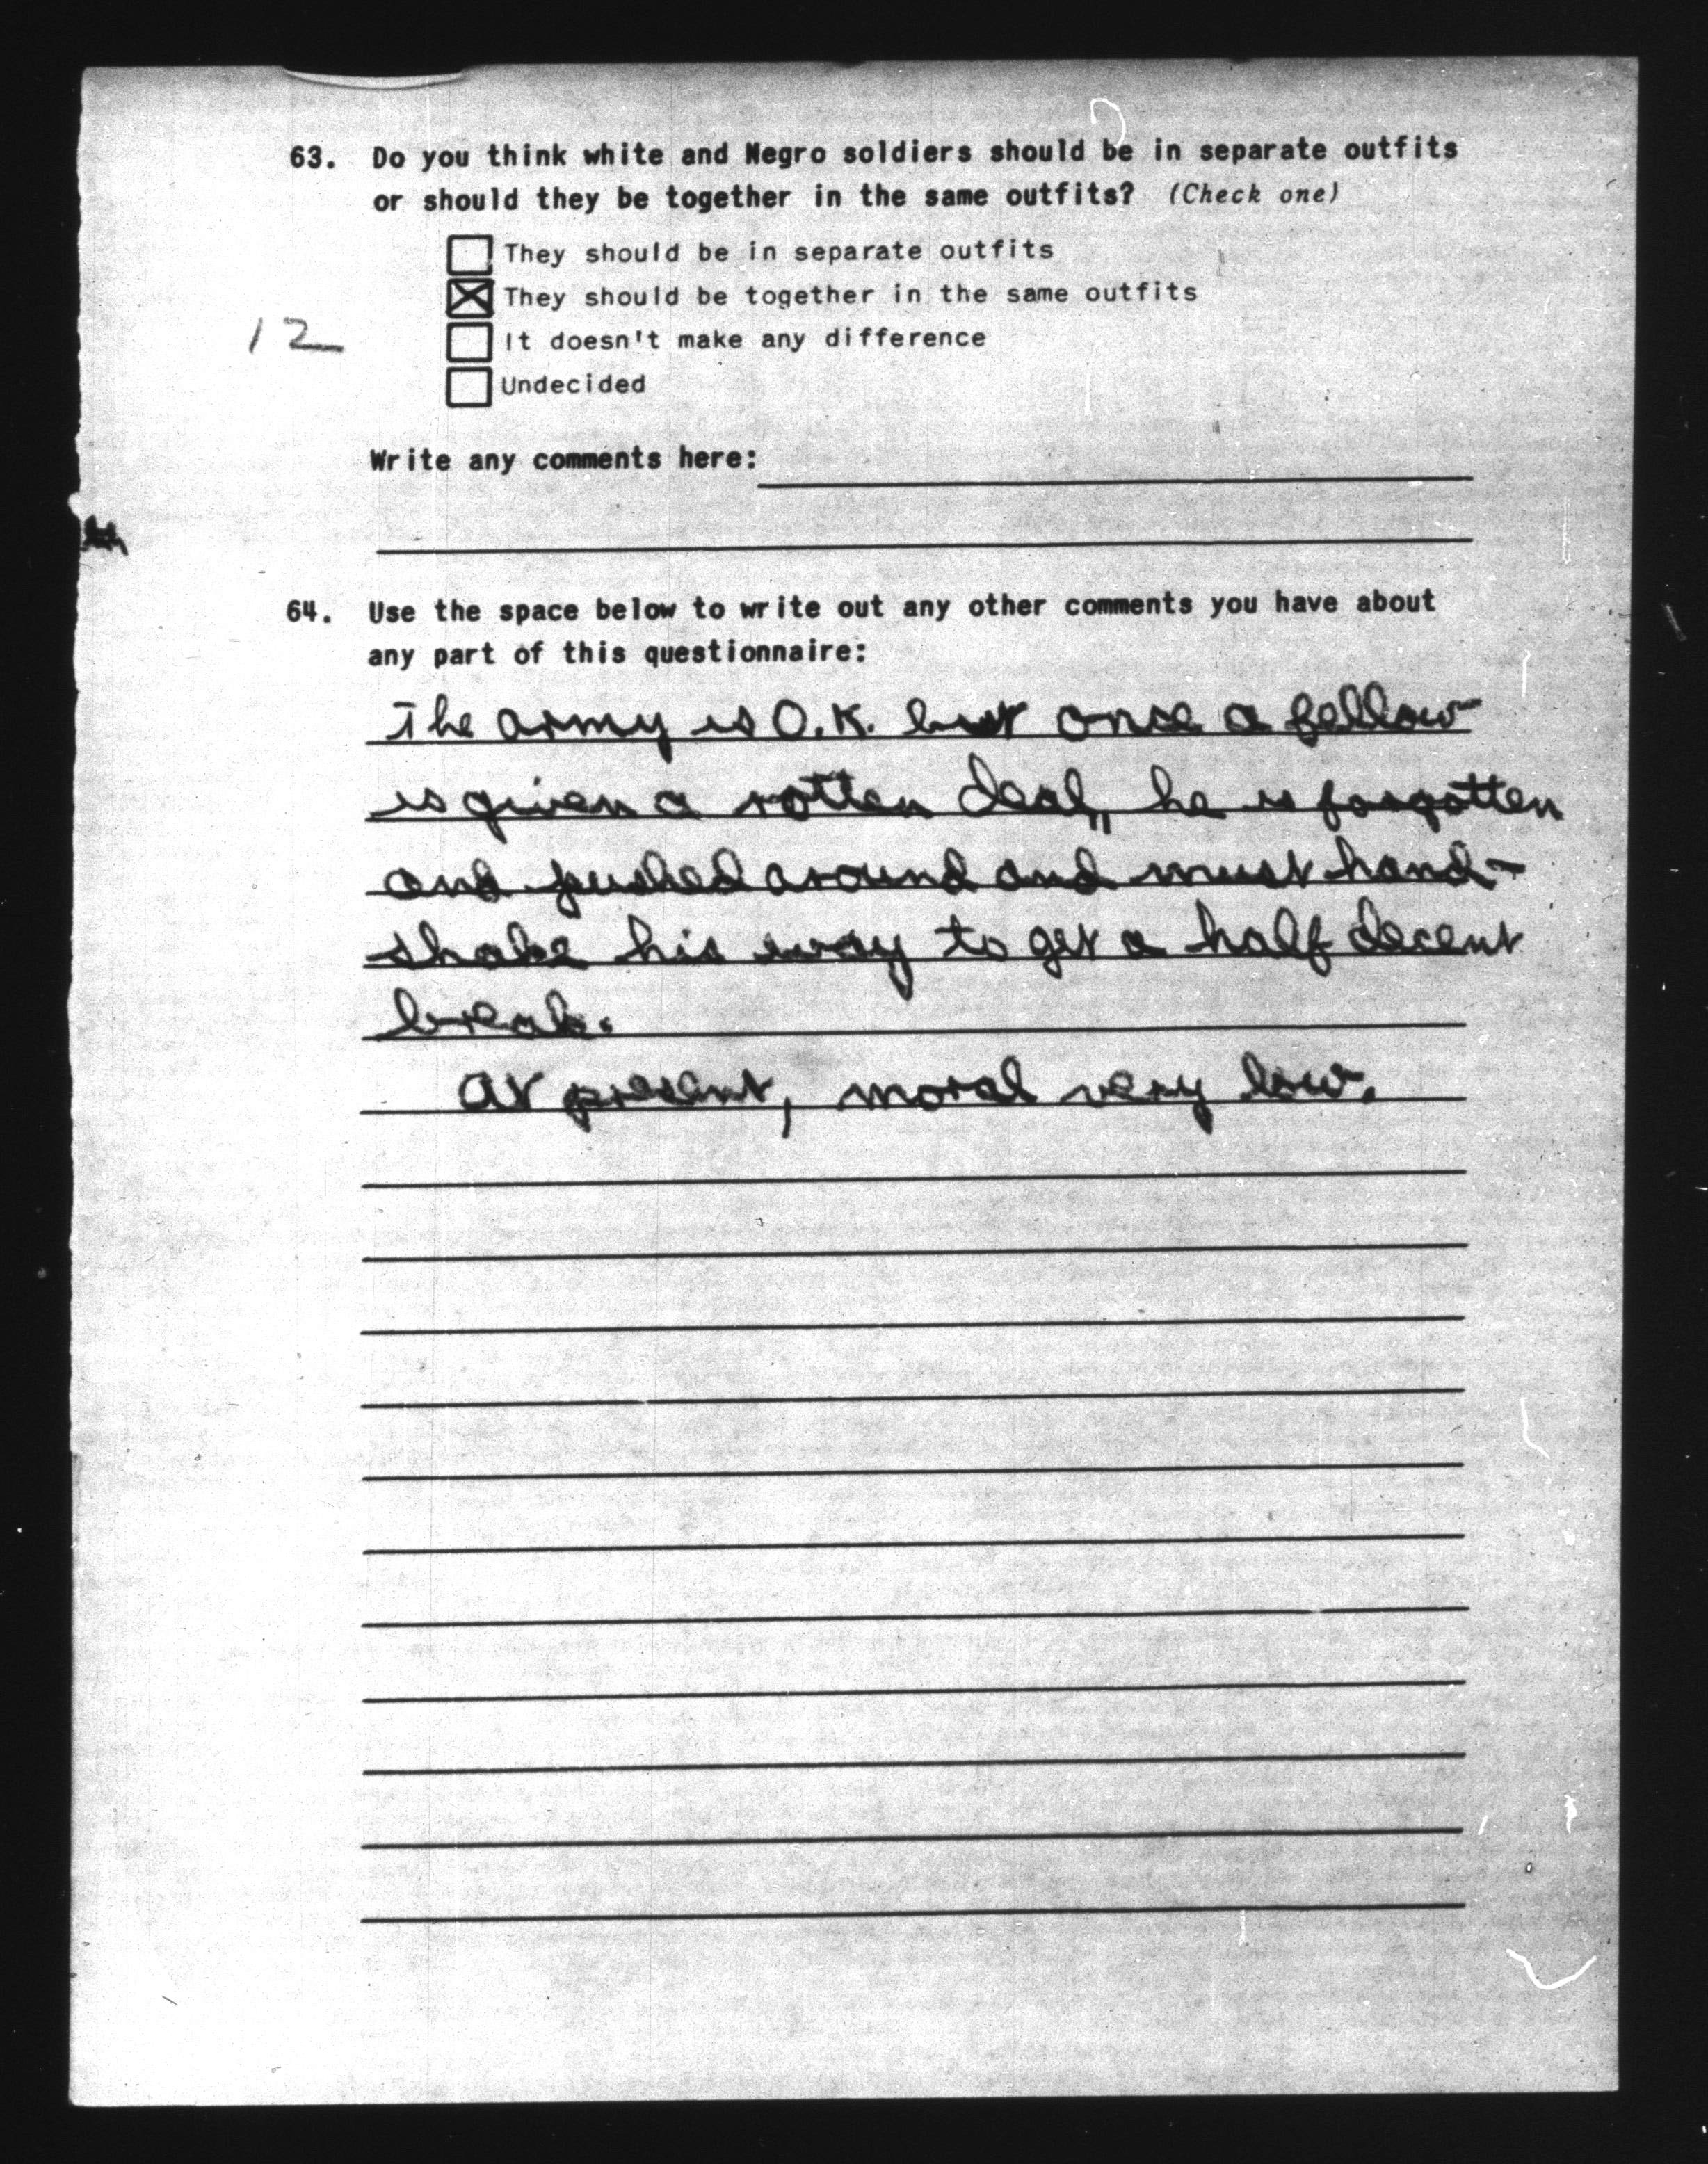 63. Do you think white and Negro soldiers should be in separate outfits
or should they be together in the same outfits? (Check one)
They should be in separate outfits
They should be together in the same outfits
12
It doesn't make any difference
Undecided
Write any comments here:
64. Use the space below to write out any other comments you have about
any part of this questionnaire:
The army is O.K. but once a fellow
is given a rotten deal, he is forgotten
and pushed around and must hand-
shake his way to get a half decent
break.
At present, moral very low.